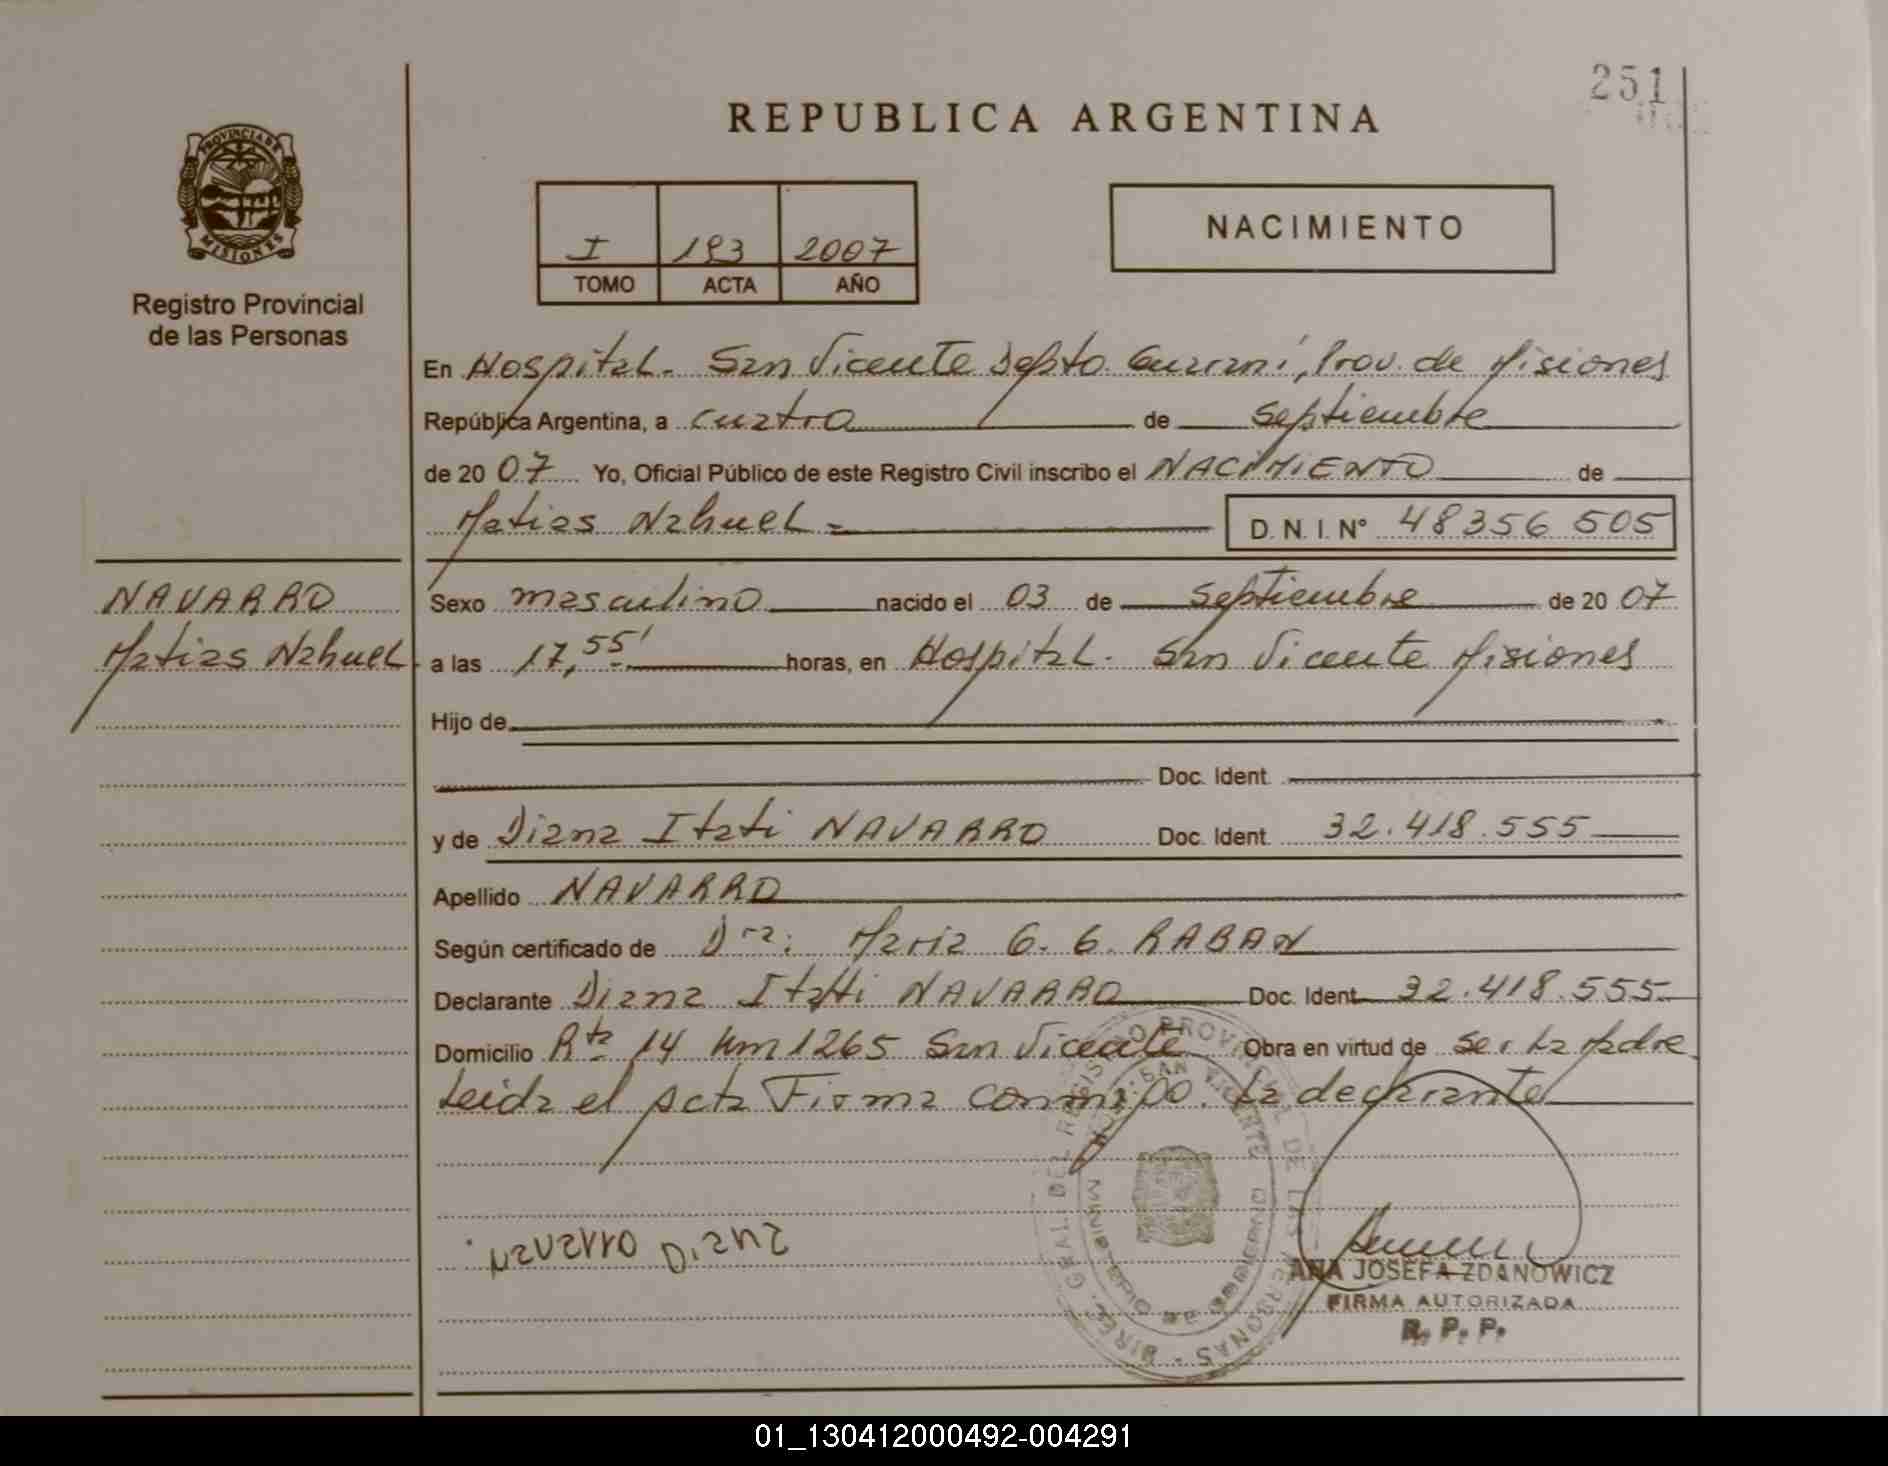 251
REPUBLICA ARGENTINA
PROVINCIA DE MISIONES
Registro Provincial
de las Personas
I 193 2007
TOMO ACTA AÑO
NACIMIENTO
En Hospital. San Vicente Depto. Guaraní, Prov. de Misiones
República Argentina, a cuatro de Septiembre
de 20 07 Yo, Oficial Público de este Registro Civil inscribo el NACIMIENTO de
Matias Nahuel.=
D. N. I. N° 48356 505
NAVARRO
Matias Nahuel
Sexo masculino nacido el 03 de Septiembre de 20 07
a las 17,55' horas, en Hospital. San Vicente Misiones
Hijo de
Doc. Ident.
y de Diana Itati NAVARRO Doc. Ident. 32.418.555
Apellido NAVARRO
Según certificado de Dra: Maria G. G. RABAN
Declarante Diana Itatti NAVARRO Doc. Ident. 32.418.555
Domicilio Rta 14 Km 1265 San Vicente Obra en virtud de ser la Madre
Leida el Acta Firma conmigo. La declarante
Navarro Diana
DIREC. GRAL. DEL REGISTRO PROVINCIAL DE LAS PERSONAS
SAN VICENTE
MINISTERIO DE GOBIERNO
ANA JOSEFA ZDANOWICZ
FIRMA AUTORIZADA
R. P. P.
01_130412000492-004291